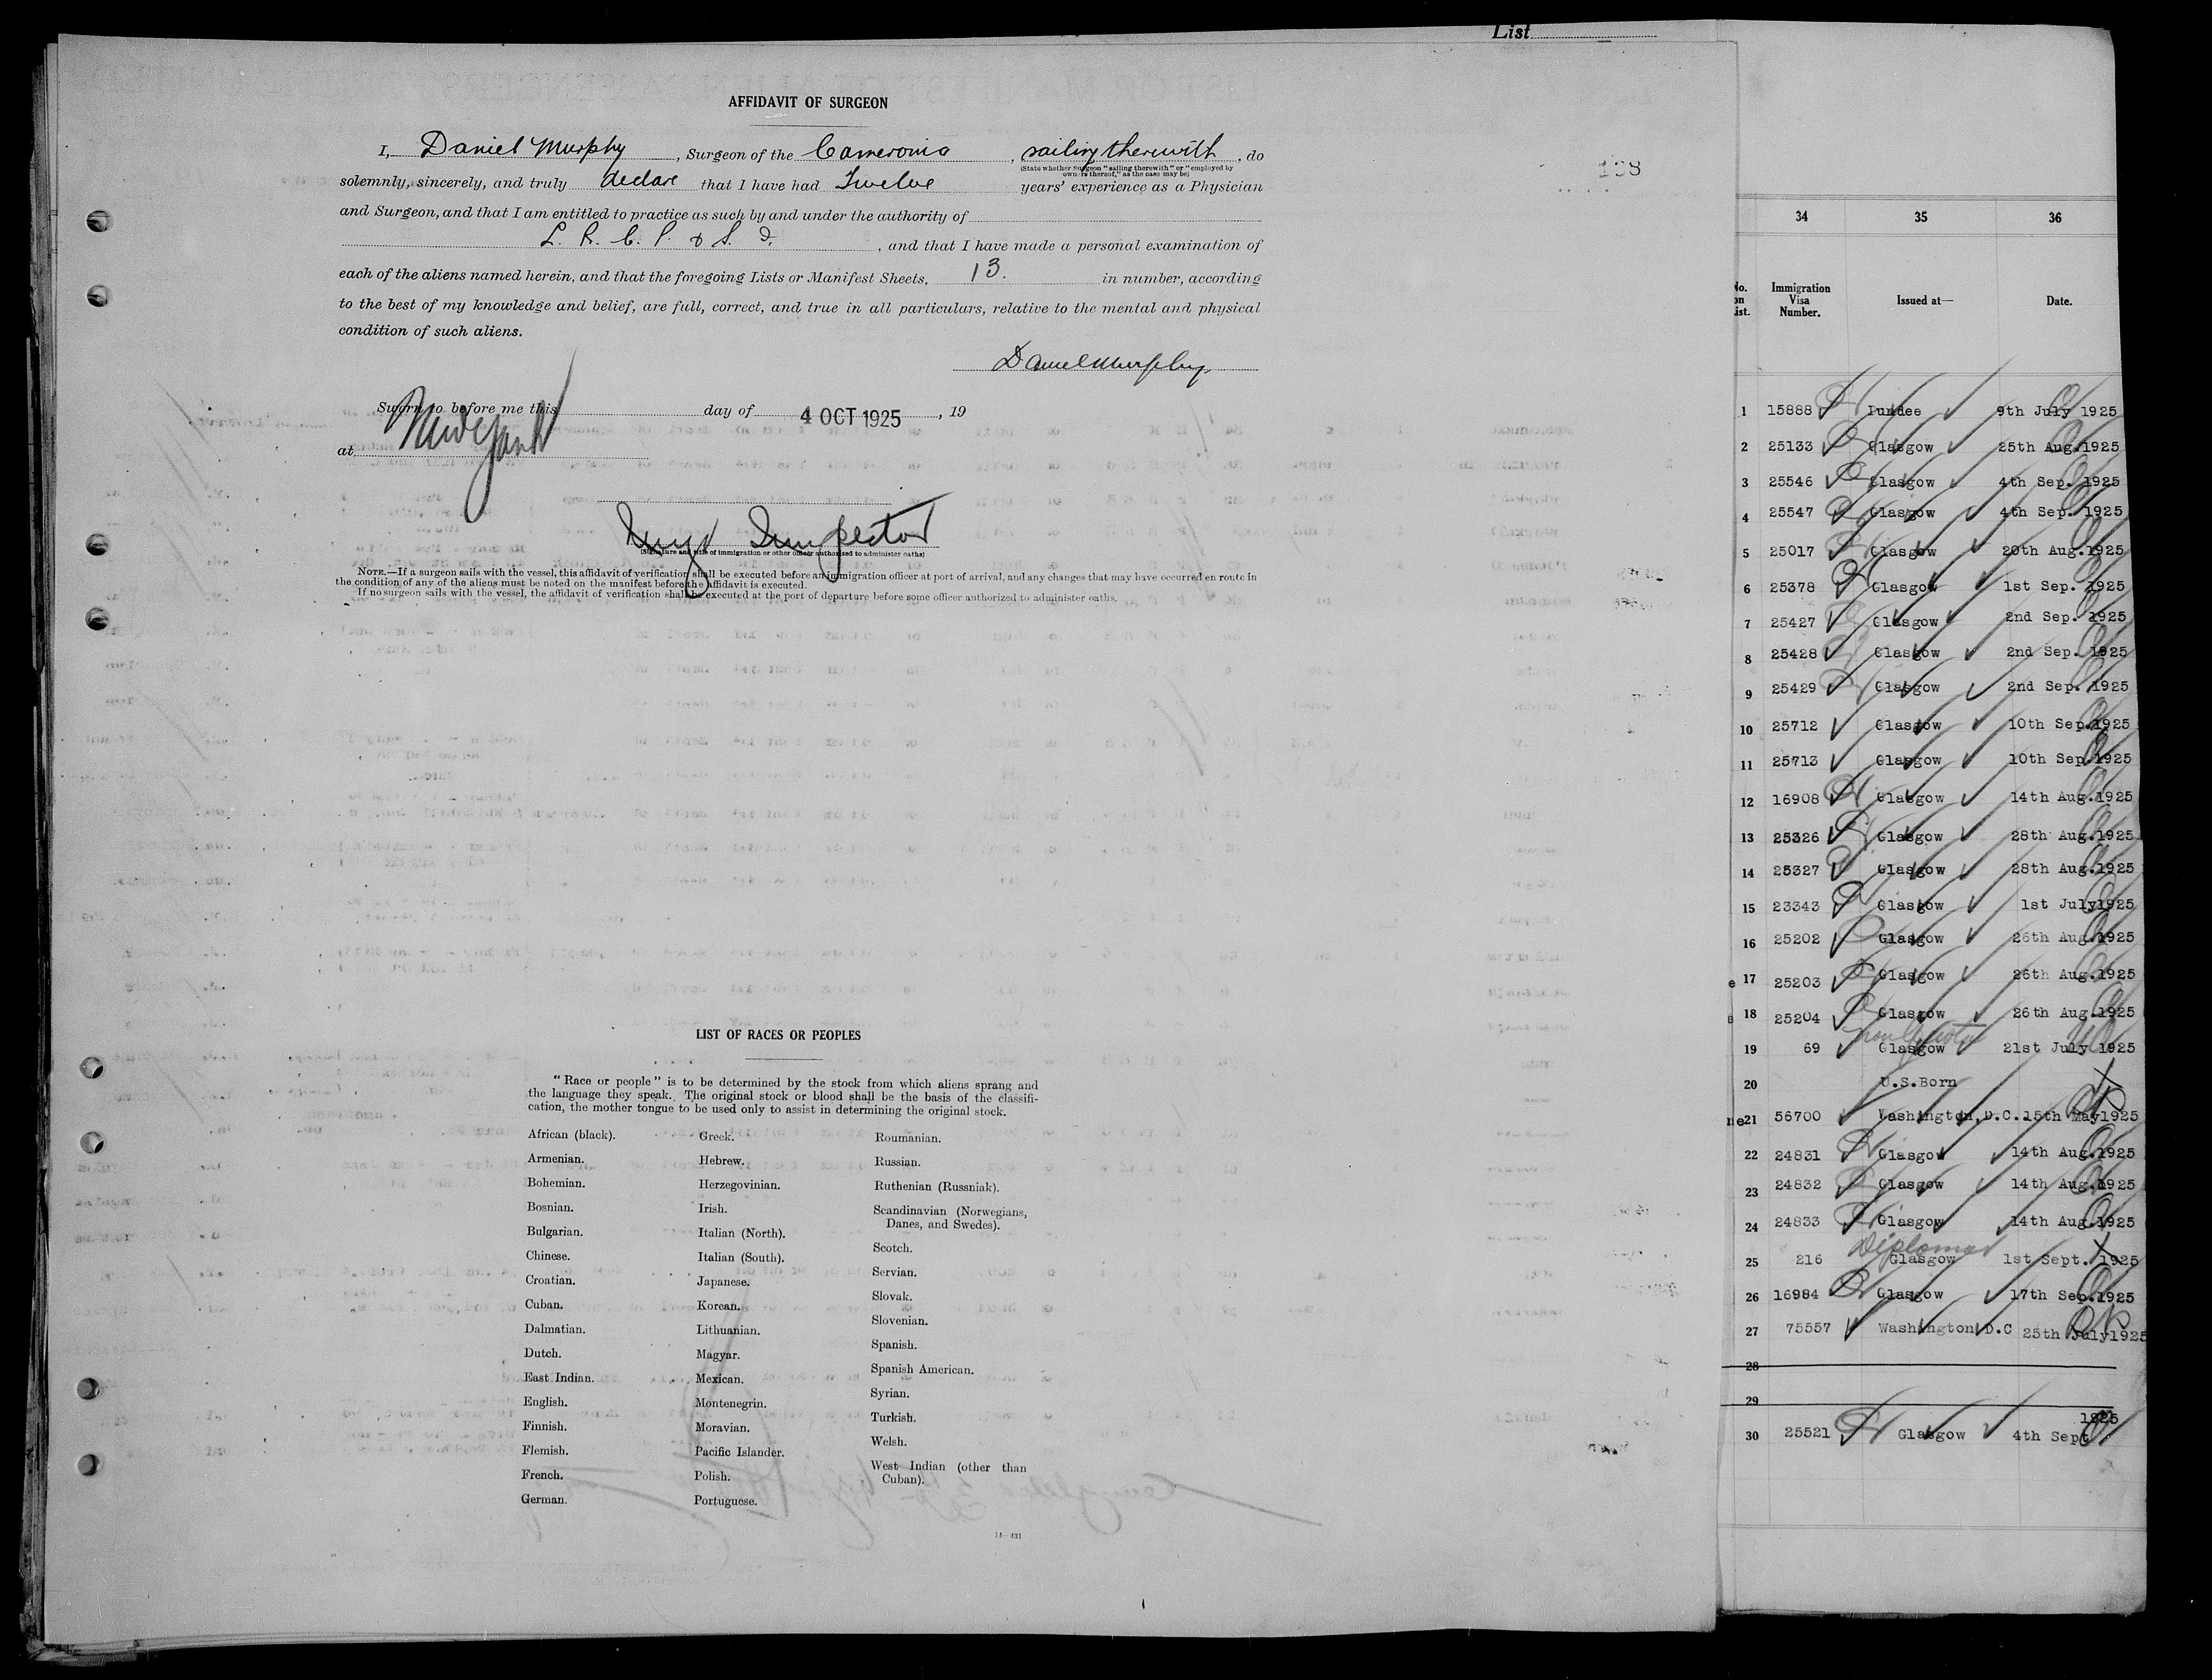 List
AFFIDAVIT OF SURGEON
I, Daniel Murphy, Surgeon of the Cameronia, sailing therewith, do
(State whether Surgeon "sailing therewith" or "employed by
owners thereof," as the case may be)
solemnly, sincerely, and truly declare that I have had Twelve years' experience as a Physician
and Surgeon, and that I am entitled to practice as such by and under the authority of
L. R. C. P. & S. I., and that I have made a personal examination of
each of the aliens named herein, and that the foregoing Lists or Manifest Sheets, 13. in number, according
to the best of my knowledge and belief, are full, correct, and true in all particulars, relative to the mental and physical
condition of such aliens.
Daniel Murphy
Sworn to before me this day of 4 OCT 1925, 19
at New York
Inspector
(Signature and title of immigration or other officer authorized to administer oaths)
NOTE.—If a surgeon sails with the vessel, this affidavit of verification shall be executed before an immigration officer at port of arrival, and any changes that may have occurred en route in
the condition of any of the aliens must be noted on the manifest before the affidavit is executed.
If no surgeon sails with the vessel, the affidavit of verification shall be executed at the port of departure before some officer authorized to administer oaths.
LIST OF RACES OR PEOPLES
"Race or people" is to be determined by the stock from which aliens sprang and
the language they speak. The original stock or blood shall be the basis of the classifi-
cation, the mother tongue to be used only to assist in determining the original stock.
African (black).
Armenian.
Bohemian.
Bosnian.
Bulgarian.
Chinese.
Croatian.
Cuban.
Dalmatian.
Dutch.
East Indian.
English.
Finnish.
Flemish.
French.
German.
Greek.
Hebrew.
Herzegovinian.
Irish.
Italian (North).
Italian (South).
Japanese.
Korean.
Lithuanian.
Magyar.
Mexican.
Montenegrin.
Moravian.
Pacific Islander.
Polish.
Portuguese.
Roumanian.
Russian.
Ruthenian (Russniak).
Scandinavian (Norwegians,
Danes, and Swedes).
Scotch.
Servian.
Slovak.
Slovenian.
Spanish.
Spanish American.
Syrian.
Turkish.
Welsh.
West Indian (other than
Cuban).
34 35 36
No. on List. Immigration Visa Number. Issued at— Date.
1 15888 Dundee 9th July 1925
2 25133 Glasgow 25th Aug.1925
3 25546 Glasgow 4th Sep. 1925
4 25547 Glasgow 4th Sep. 1925
5 25017 Glasgow 20th Aug.1925
6 25378 Glasgow 1st Sep. 1925
7 25427 Glasgow 2nd Sep. 1925
8 25428 Glasgow 2nd Sep. 1925
9 25429 Glasgow 2nd Sep. 1925
10 25712 Glasgow 10th Sep.1925
11 25713 Glasgow 10th Sep.1925
12 16908 Glasgow 14th Aug.1925
13 25326 Glasgow 28th Aug.1925
14 25327 Glasgow 28th Aug.1925
15 23343 Glasgow 1st July1925
16 25202 Glasgow 26th Aug.1925
17 25203 Glasgow 26th Aug.1925
18 25204 Glasgow 26th Aug.1925
19 69 Glasgow 21st July 1925
20 U.S.Born
21 56700 Washington,D.C. 15th May1925
22 24831 Glasgow 14th Aug.1925
23 24832 Glasgow 14th Aug.1925
24 24833 Glasgow 14th Aug.1925
Diplomat
25 216 Glasgow 1st Sept. 1925
26 16984 Glasgow 17th Sep.1925
27 75557 Washington D.C 25th July1925
28
29
30 25521 Glasgow 4th Sept 1925